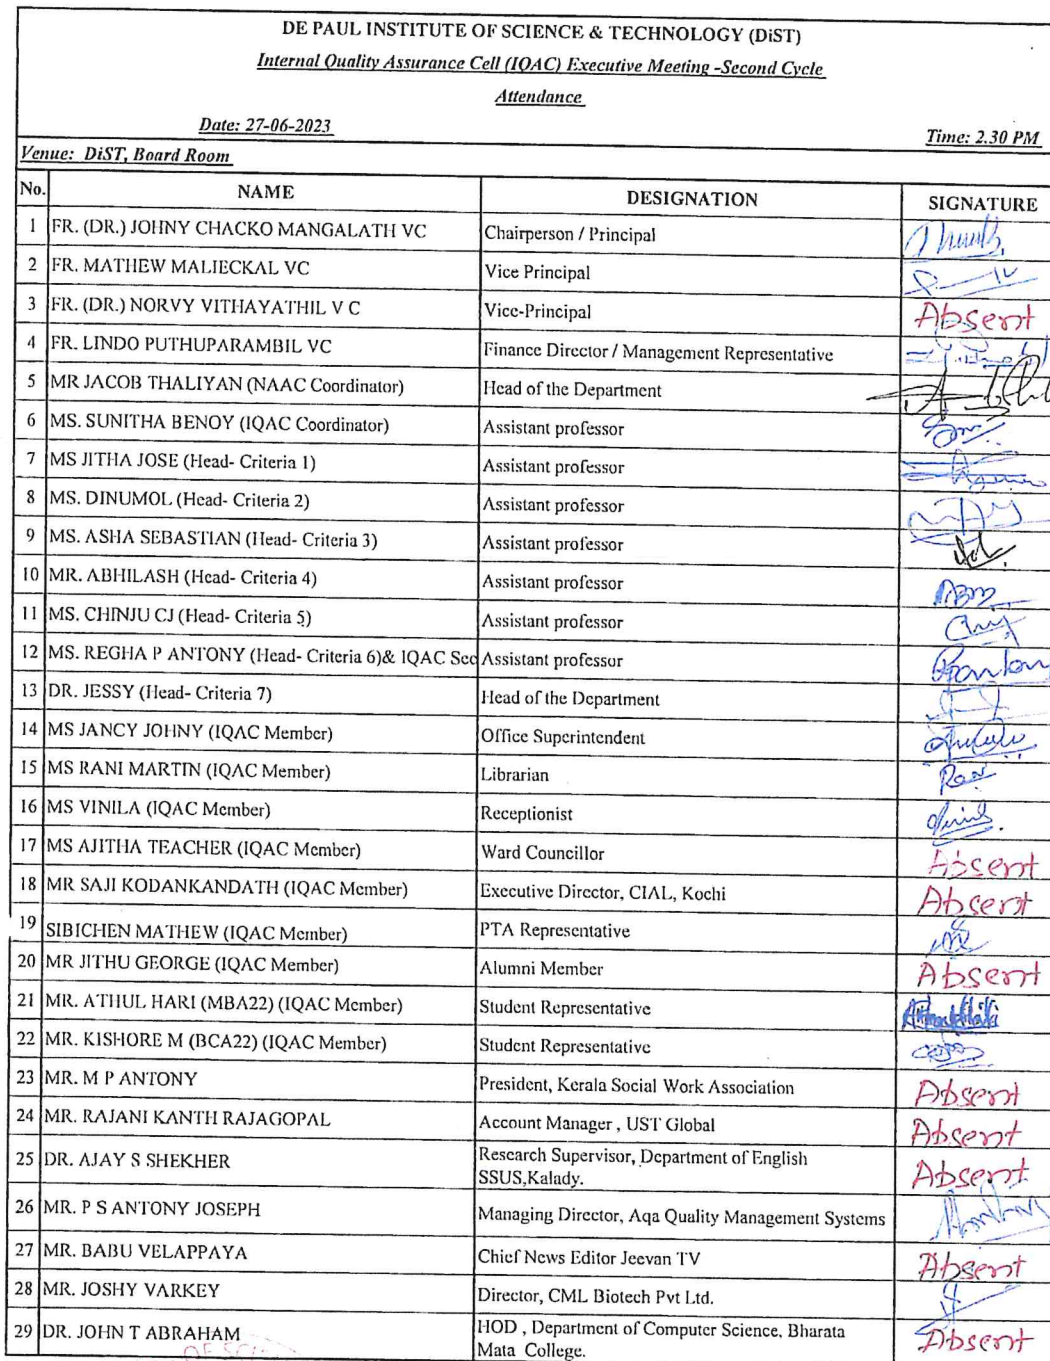 DE PAUL INSTITUTE OF SCIENCE & TECHNOLOGY (DiST)
Internal Quality Assurance Cell (IQAC) Executive Meeting -Second Cycle
Attendance
Date: 27-06-2023 Time: 2.30 PM
Venue: DiST, Board Room
No. NAME DESIGNATION SIGNATURE
1 FR. (DR.) JOHNY CHACKO MANGALATH VC Chairperson / Principal
2 FR. MATHEW MALIECKAL VC Vice Principal
3 FR. (DR.) NORVY VITHAYATHIL V C Vice-Principal Absent
4 FR. LINDO PUTHUPARAMBIL VC Finance Director / Management Representative
5 MR JACOB THALIYAN (NAAC Coordinator) Head of the Department
6 MS. SUNITHA BENOY (IQAC Coordinator) Assistant professor
7 MS JITHA JOSE (Head- Criteria 1) Assistant professor
8 MS. DINUMOL (Head- Criteria 2) Assistant professor
9 MS. ASHA SEBASTIAN (Head- Criteria 3) Assistant professor
10 MR. ABHILASH (Head- Criteria 4) Assistant professor
11 MS. CHINJU CJ (Head- Criteria 5) Assistant professor
12 MS. REGHA P ANTONY (Head- Criteria 6)& IQAC Sec Assistant professor
13 DR. JESSY (Head- Criteria 7) Head of the Department
14 MS JANCY JOHNY (IQAC Member) Office Superintendent
15 MS RANI MARTIN (IQAC Member) Librarian
16 MS VINILA (IQAC Member) Receptionist
17 MS AJITHA TEACHER (IQAC Member) Ward Councillor Absent
18 MR SAJI KODANKANDATH (IQAC Member) Executive Director, CIAL, Kochi Absent
19 SIBICHEN MATHEW (IQAC Member) PTA Representative
20 MR JITHU GEORGE (IQAC Member) Alumni Member Absent
21 MR. ATHUL HARI (MBA22) (IQAC Member) Student Representative
22 MR. KISHORE M (BCA22) (IQAC Member) Student Representative
23 MR. M P ANTONY President, Kerala Social Work Association Absent
24 MR. RAJANI KANTH RAJAGOPAL Account Manager , UST Global Absent
25 DR. AJAY S SHEKHER Research Supervisor, Department of English
SSUS,Kalady. Absent
26 MR. P S ANTONY JOSEPH Managing Director, Aqa Quality Management Systems
27 MR. BABU VELAPPAYA Chief News Editor Jeevan TV Absent
28 MR. JOSHY VARKEY Director, CML Biotech Pvt Ltd.
29 DR. JOHN T ABRAHAM HOD , Department of Computer Science, Bharata
Mata College. Absent